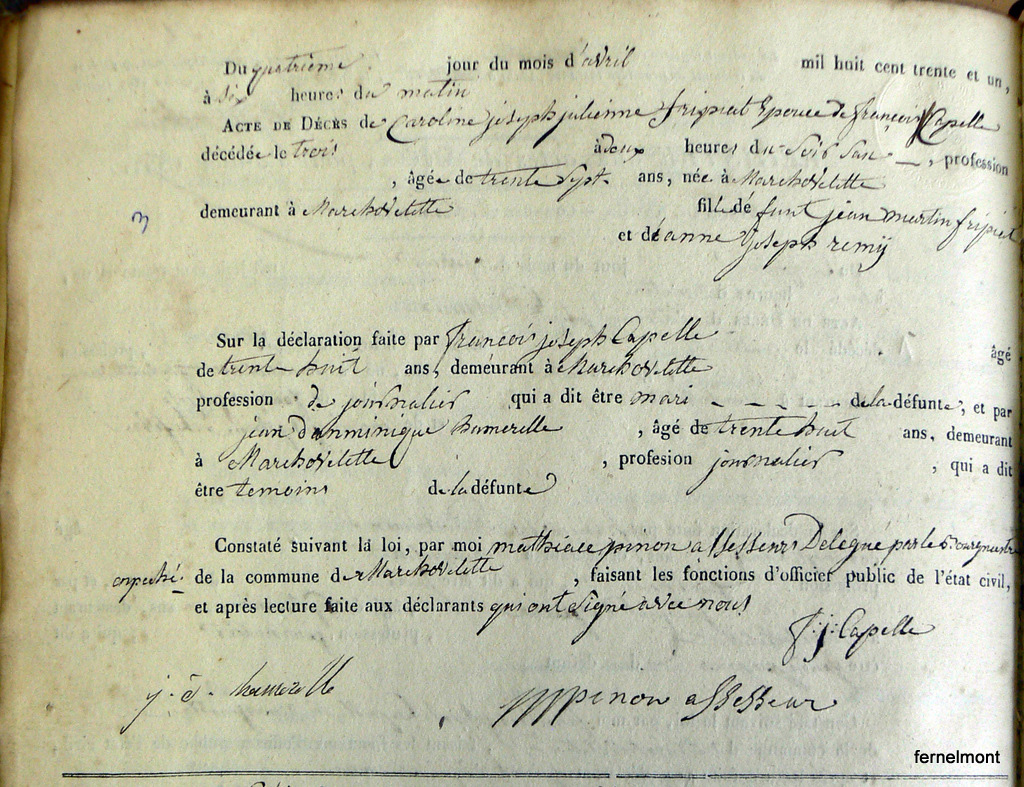 Du quatrième jour du mois d'avril mil huit cent trente et un,
à six heures du matin
ACTE DE DÉCÈS de Caroline joseph julienne fripiat Epouce de françois Capelle
décédée le trois à deux heures du Soir San — , profession
, âgée de trente Sept ans, née à Marchovelette
3 demeurant à Marchovelette fille de funt jean martin fripiat
et de anne joseph remÿ
Sur la déclaration faite par francois joseph Capelle âgé
de trente huit ans, demeurant à Marchovelette
profession de journalier qui a dit être mari - - - - - de la défunte, et par
jean donminique hamerelle , âgé de trente huit ans, demeurant
à Marchovelette , profesion journalier , qui a dit
être temoins de la défunte
Constaté suivant la loi, par moi mathiace pinon assesseur Delegué par le Bourgmestre
empeché de la commune de Marchovelette , faisant les fonctions d'officier public de l'état civil,
et après lecture faite aux déclarants qui ont Signé avec nous
f: j: Capelle
j. d. hamerelle mpinon assesseur
fernelmont